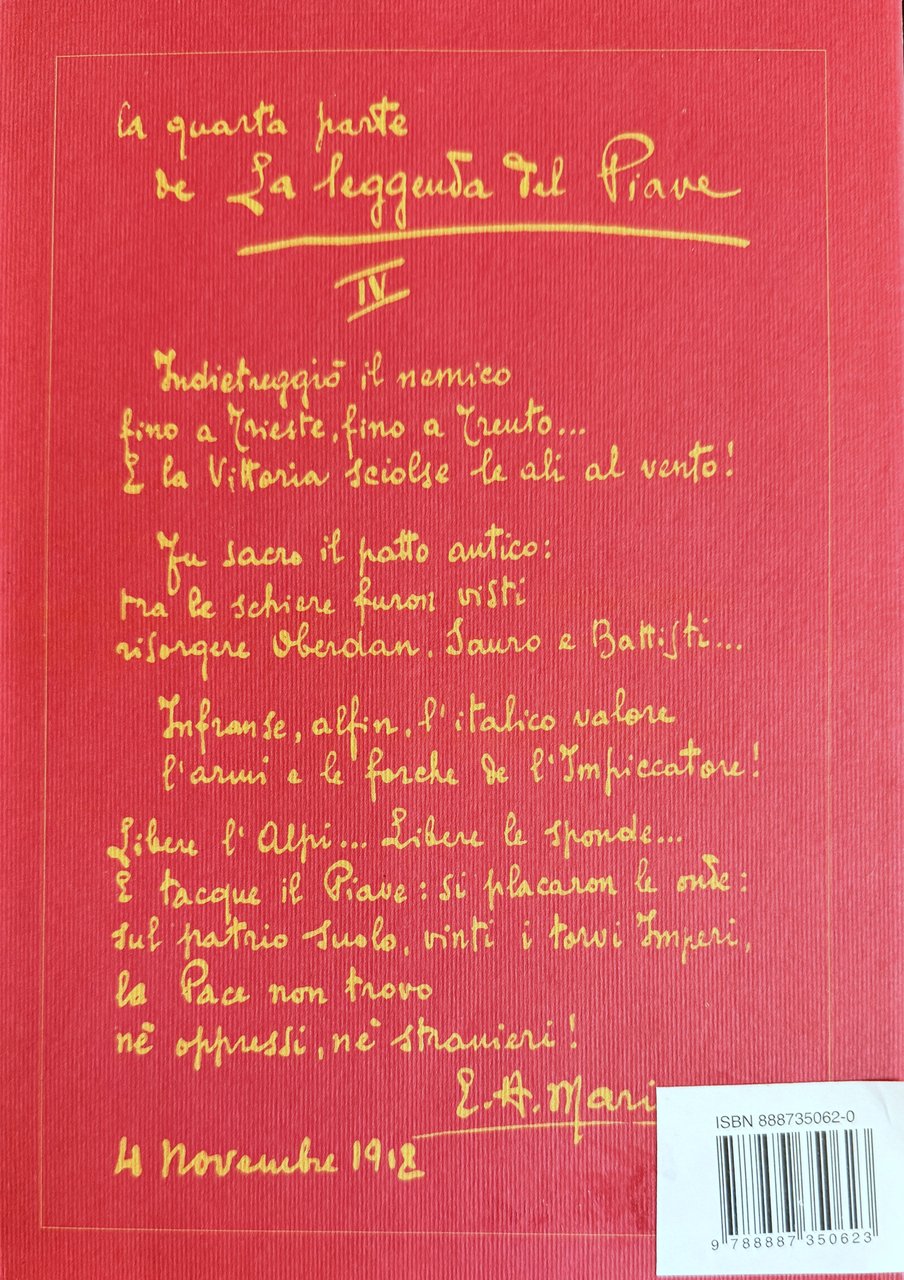 la quarta parte
de La leggenda del Piave
IV
Indietreggiò il nemico
fino a Trieste, fino a Trento...
E la Vittoria sciolse le ali al vento!
Fu sacro il patto antico:
tra le schiere furon visti
risorgere Oberdan, Sauro e Battisti...
Infranse, alfin, l'italico valore
l'armi e le forche de l'Impiccatore!
Libere l'Alpi... Libere le sponde...
E tacque il Piave: si placaron le onde:
sul patrio suolo, vinti i torvi Imperi,
la Pace non trovo
nè oppressi, nè stranieri!
E. A. Mari
4 Novembre 1918
ISBN 888735062-0
9 788887 350623